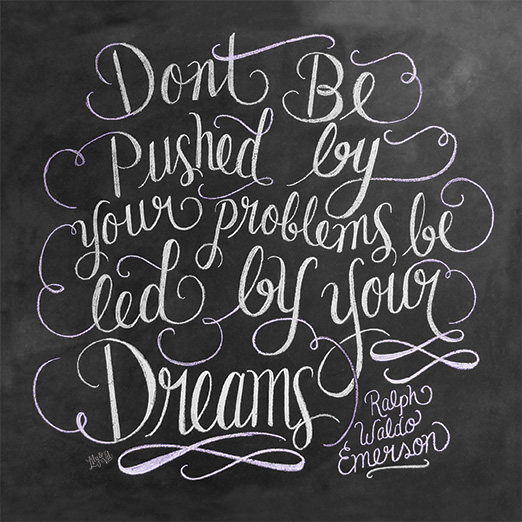 Dont Be
Pushed by
your problems, be
led by your
Dreams
Ralph
Waldo
Emerson